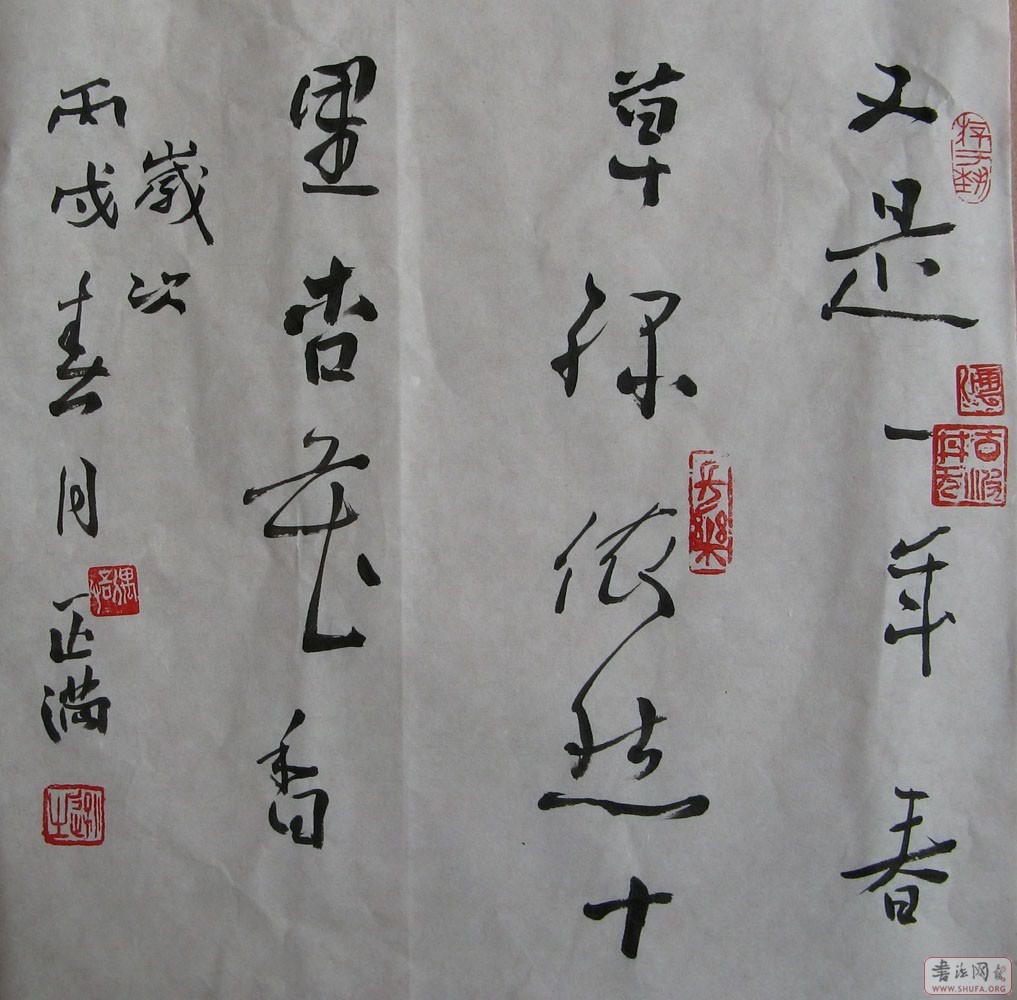 又是一年春
草绿依然十
里杏花香
歲次
丙戌春月 正满
長樂
書法网
WWW.SHUFA.ORG